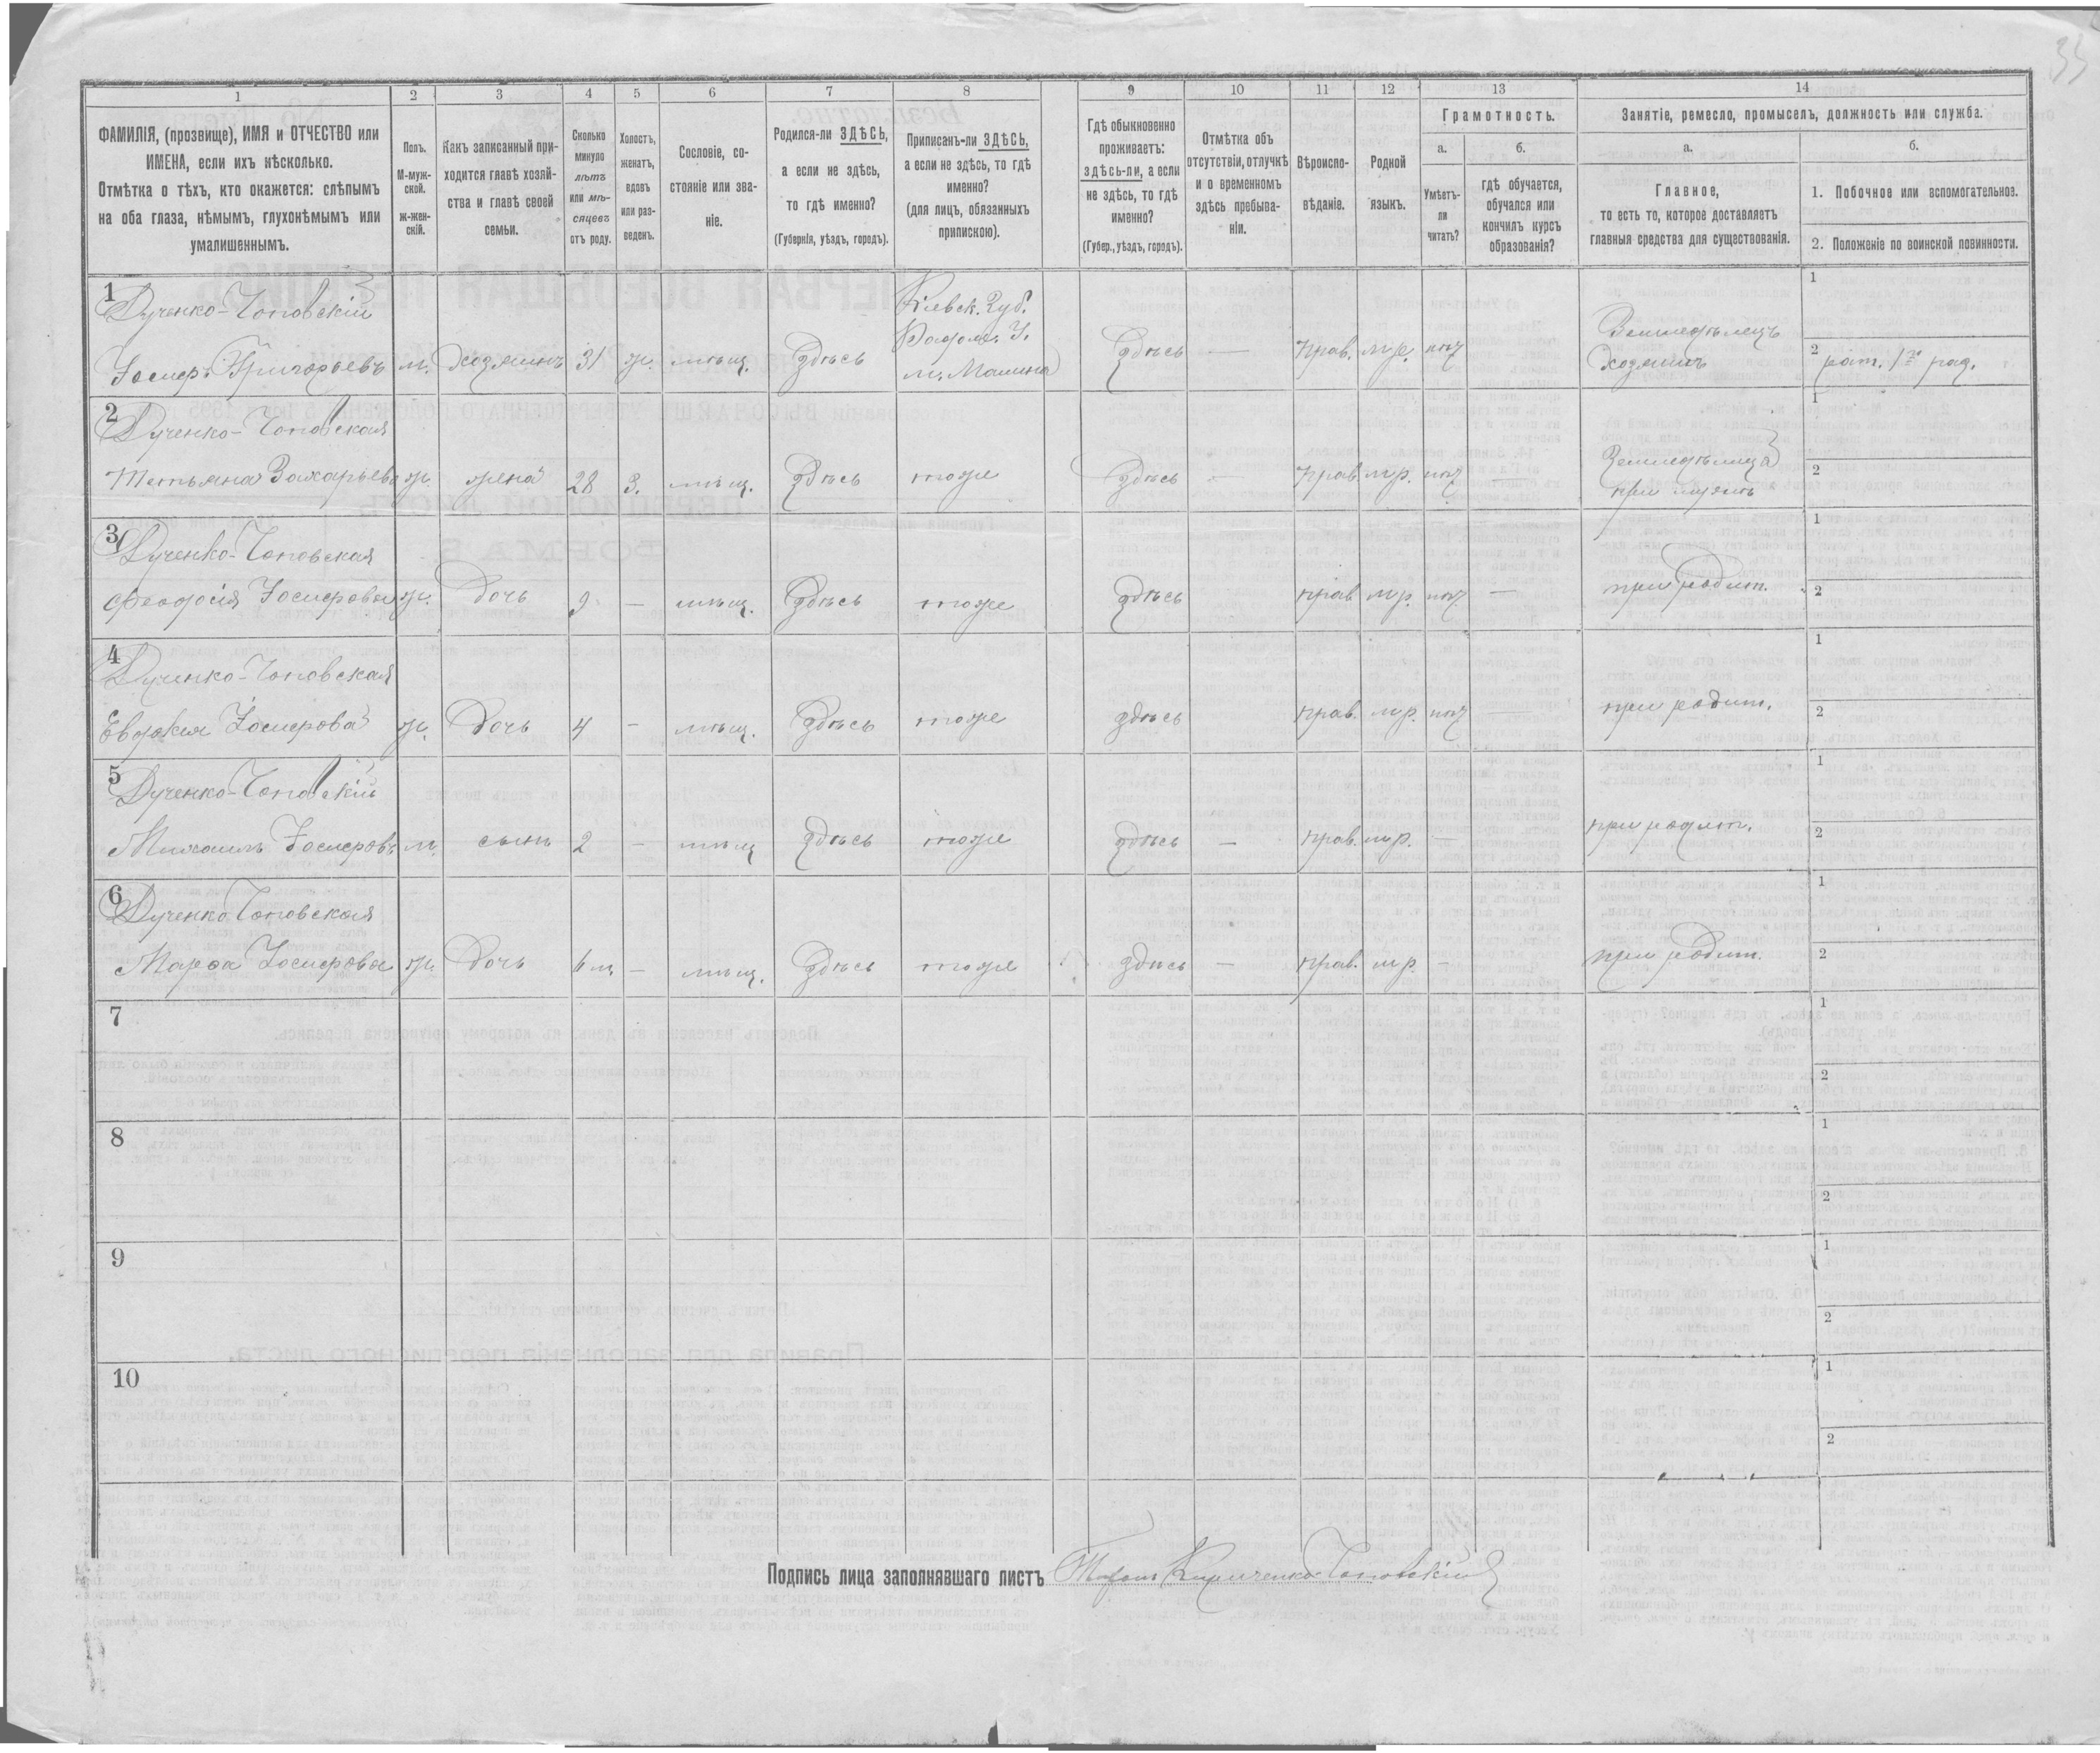 35
1 2 3 4 5 6 7 8 9 10 11 12 13 14
ФАМИЛІЯ, (прозвище), ИМЯ и ОТЧЕСТВО или
ИМЕНА, если ихъ нѣсколько.
Отмѣтка о тѣхъ, кто окажется: слѣпымъ
на оба глаза, нѣмымъ, глухонѣмымъ или
умалишеннымъ.
Полъ.
М-муж-
ской.
ж-жен-
скій.
Какъ записанный при-
ходится главѣ хозяй-
ства и главѣ своей
семьи.
Сколько
минуло
лѣтъ
или мѣ-
сяцевъ
отъ роду.
Холостъ,
женатъ,
вдовъ
или раз-
веденъ.
Сословіе, со-
стояніе или зва-
ніе.
Родился-ли ЗДѢСЬ,
а если не здѣсь,
то гдѣ именно?
(Губернія, уѣздъ, городъ).
Приписанъ-ли ЗДѢСЬ,
а если не здѣсь, то гдѣ
именно?
(для лицъ, обязанныхъ
припискою).
Гдѣ обыкновенно
проживаетъ:
здѣсь-ли, а если
не здѣсь, то гдѣ
именно?
(Губер., уѣздъ, городъ).
Отмѣтка объ
отсутствіи, отлучкѣ
и о временномъ
здѣсь пребыва-
ніи.
Вѣроиспо-
вѣданіе.
Родной
языкъ.
Грамотность.
а.
Умѣетъ-
ли
читать?
б.
гдѣ обучается,
обучался или
кончилъ курсъ
образованія?
Занятіе, ремесло, промыселъ, должность или служба.
а.
Главное,
то есть то, которое доставляетъ
главныя средства для существованія.
б.
1. Побочное или вспомогательное.
2. Положеніе по воинской повинности.
1
Дученко-Чоповскій
Іосиф. Григорьевъ м. Хозяинъ 31 ж. мѣщ. Здѣсь
Кіевск. Губ.
Радом. У.
м. Малина
Здѣсь — прав. м.р. нѣт
Земледѣлецъ
хозяинъ
1
2 рат. 1го раз.
2
Дученко-Чоповская
Тетьяна Захарьева ж. жена 28 з. мѣщ. Здѣсь тоже Здѣсь прав. м.р. нѣт
Земледѣлица
при мужѣ
1
2
3
Дученко-Чоповская
Феодосія Іосифова ж. Дочь 9 — мѣщ. Здѣсь тоже здѣсь прав. м.р. нѣт — при родит.
1
2
4
Дученко-Чоповская
Евдокія Іосифова ж. Дочь 4 — мѣщ. Здѣсь тоже здѣсь прав. м.р. нѣт — при родит.
1
2
5
Дученко-Чоповскій
Михаилъ Іосифовъ м. сынъ 2 — мѣщ Здѣсь тоже здѣсь — прав. м.р. — при родит.
1
2
6
Дученко Чоповская
Марѳа Іосифова ж. Дочь 6 м — мѣщ. Здѣсь тоже здѣсь — прав. м.р. — при родит.
1
2
7
1
2
8
1
2
9
1
2
10
1
2
Подпись лица заполнявшаго листъ Кириченко-Чоповскій